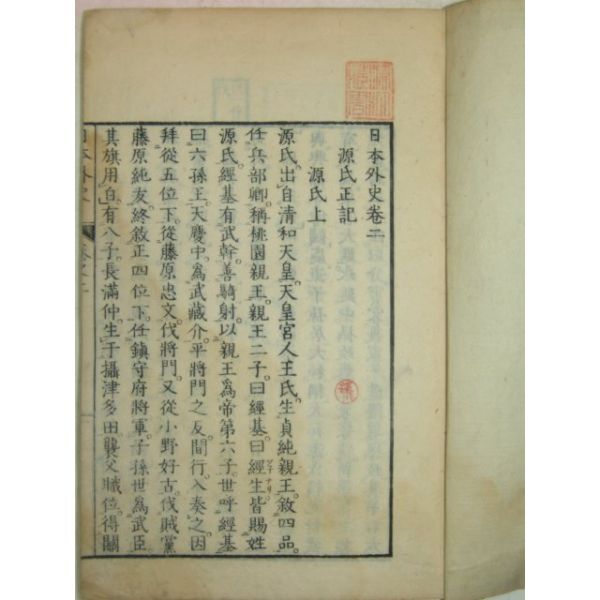 日本外史卷二
源氏正記
源氏上
源氏。出自清和天皇。天皇宮人王氏。生貞純親王。敘四品。
任兵部卿。稱桃園親王。親王二子。曰經基。曰經生。皆賜姓
源氏。經基有武幹。善騎射。以親王爲帝第六子。世呼經基
曰六孫王。天慶中。爲武藏介。平將門之反。間行。入奏之。因
拜從五位下。從藤原忠文伐將門。又從小野好古。伐賊黨
藤原純友。終敘正四位下。任鎮守府將軍。子孫世爲武臣
其旗用白。有八子。長滿仲。生于攝津多田。襲父職位。得關
日本外史